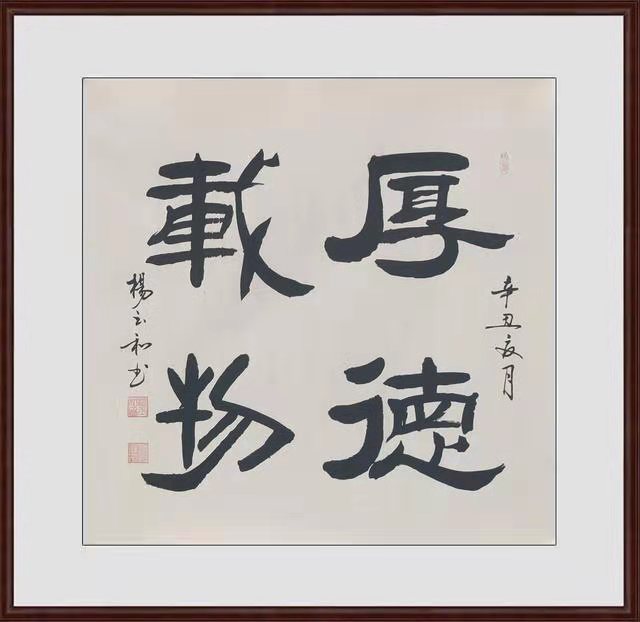 辛丑夏月
厚德
載物
楊和书